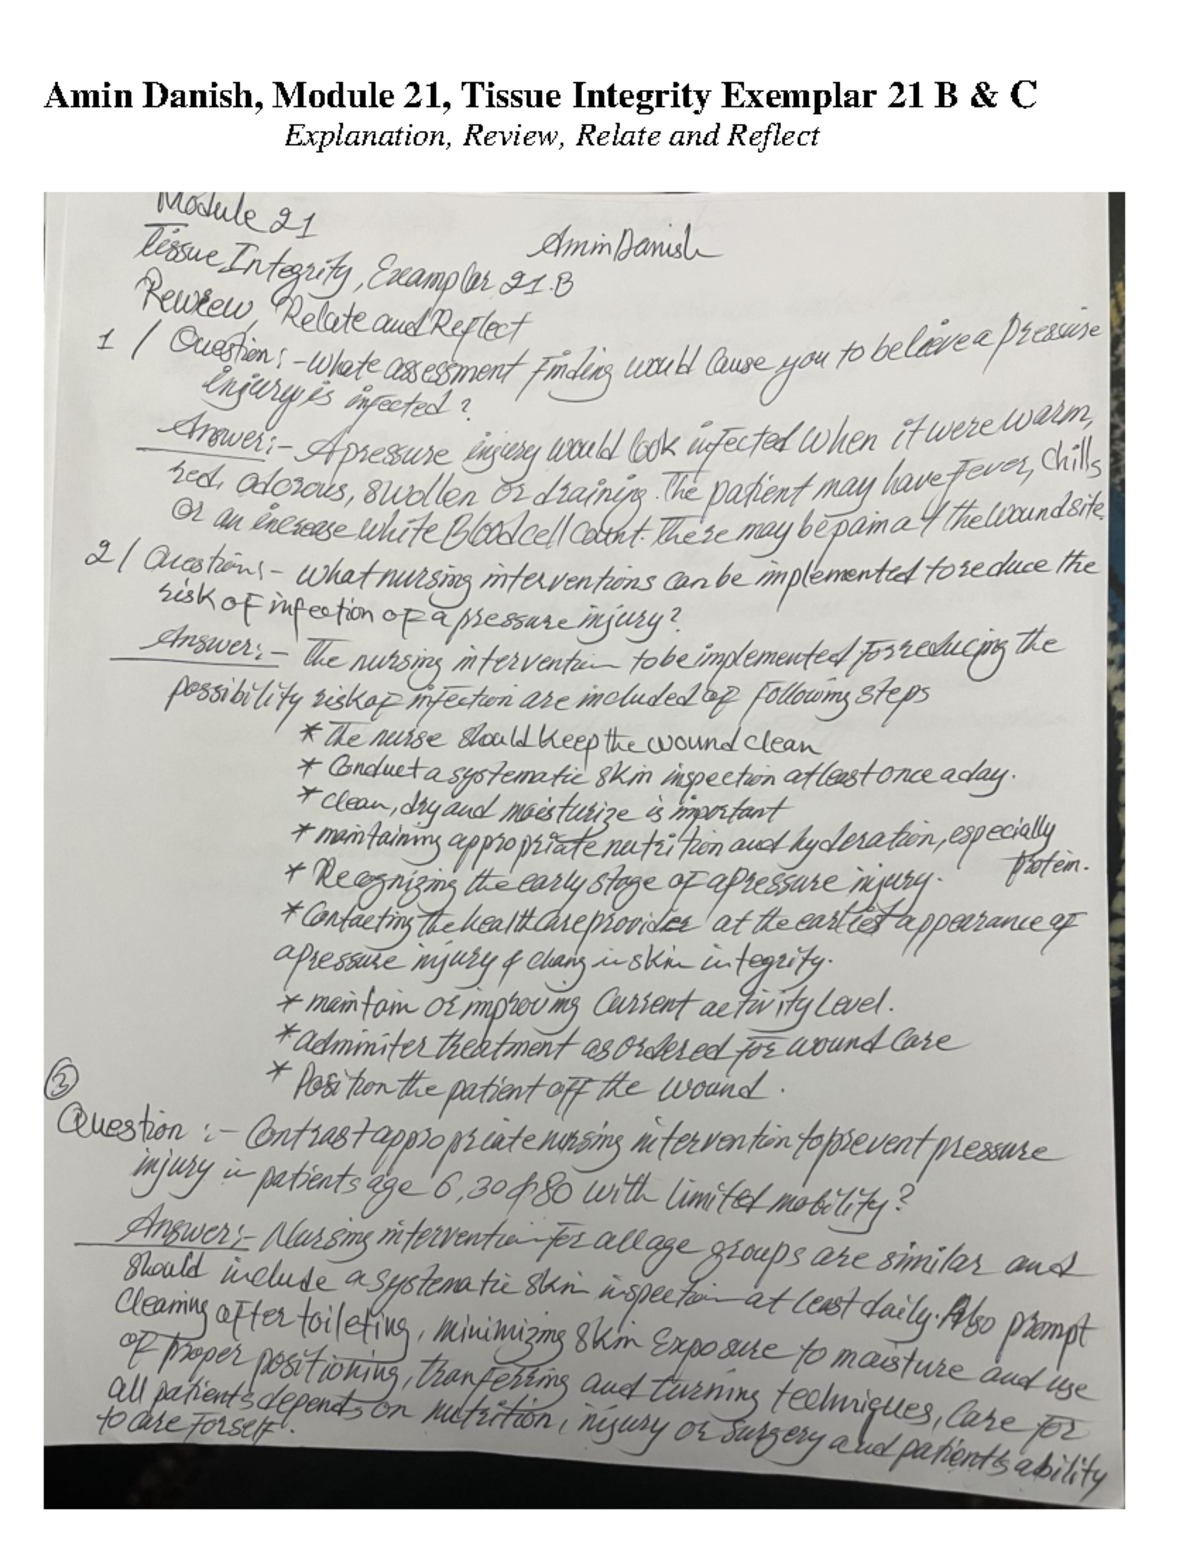 Amin Danish, Module 21, Tissue Integrity Exemplar 21 B & C
Explanation, Review, Relate and Reflect
Module 21
Amin Danish
Tissue Integrity, Examplar 21.B
Review, Relate and Reflect
1 / Question:- whate assessment finding would cause you to believe a pressure
injury is infected?
Answer:- A pressure injury would look infected when it were warm,
red, odorous, swollen or draining. The patient may have fever, chills
or an increase white Blood cell count. There may be pain at the wound site.
2 / Question:- what nursing interventions can be implemented to reduce the
risk of infection of a pressure injury?
Answer:- The nursing intervention to be implemented for reducing the
possibility risk of infection are included of following steps
* The nurse should keep the wound clean
* Conduct a systematic skin inspection at least once a day.
* clean, dry and moisturize is important
* maintaining appropriate nutrition and hyderation, especially
protein.
* Recognizing the early stage of a pressure injury.
* Contacting the healthcare provider at the earliest appearance of
a pressure injury & chang in skin integrity.
* maintain or improving Current activity Level.
* adminiter treatment as ordered for wound Care
* Position the patient off the wound.
3
Question :- Contrast appropriate nursing intervention to prevent pressure
injury in patients age 6, 30 & 80 with limited mobility?
Answer:- Nursing intervention for all age groups are similar and
should include a systematic skin inspection at least daily. Also prompt
Cleaning after toileting, minimizing skin Exposure to moisture and use
of proper positioning, tranferring and turning techniques, Care for
all patients depends on nutrition, injury or surgery and patients ability
to care for self.